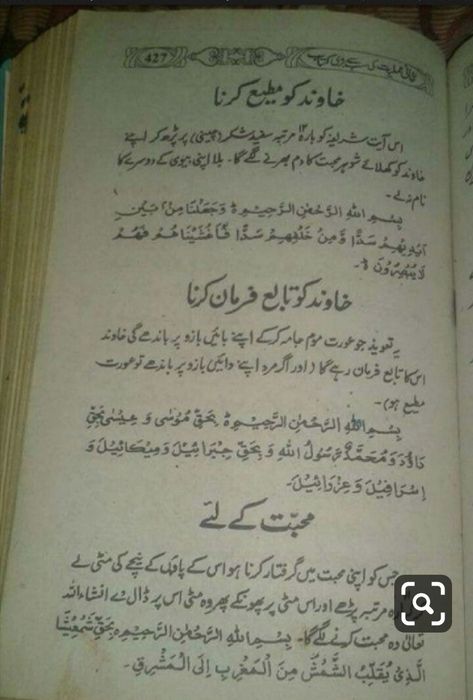 427
خاوند کو مطیع کرنا
اس آیت شریفہ کو بارہ ۱۲ مرتبہ سفید شکر (چینی) پر پڑھ کر اپنے
خاوند کو کھلائے شوہر محبت کا دم بھرنے لگے گا۔ بلا اپنی بیوی کے دوسرے کا
نام نہ لے۔
بِسْمِ اللهِ الرَّحْمٰنِ الرَّحِيْمِ وَجَعَلْنَا مِنْ بَيْنِ
اَيْدِيْهِمْ سَدًّا وَّمِنْ خَلْفِهِمْ سَدًّا فَاَغْشَيْنَاهُمْ فَهُمْ
لَا يُبْصِرُوْنَ
خاوند کو تابع فرمان کرنا
یہ تعویذ جو عورت موم جامہ کر کے اپنے بائیں بازو پر باندھے گی خاوند
اس کا تابع فرمان رہے گا (اور اگر مرد اپنے دائیں بازو پر باندھے تو عورت
مطیع ہو)۔
بِسْمِ اللهِ الرَّحْمٰنِ الرَّحِيْمِ بِحَقِّ مُوْسٰى وَ عِيْسٰى بَحَقِّ
دَاؤدَ وَ مُحَمَّدٌ رَّسُوْلُ اللهِ وَ بِحَقِّ جِبْرَائِيْلَ وَ مِيْكَائِيْلَ وَ
اِسْرَافِيْلَ وَ عِزْرَائِيْلَ۔
محبّت کے لئے
جس کو اپنی محبت میں گرفتار کرنا ہو اس کے پاؤں کے نیچے کی مٹی لے
مرتبہ پڑھے اور اس مٹی پر پھونکے پھر وہ مٹی اس پر ڈال دے انشاءاللہ
تعالٰی وہ محبت کرنے لگے گا۔ بِسْمِ اللهِ الرَّحْمٰنِ الرَّحِيْمِ بِحَقِّ
الَّذِىْ يُقَلِّبُ الشَّمْسَ مِنَ الْمَغْرِبِ اِلَى الْمَشْرِقِ۔